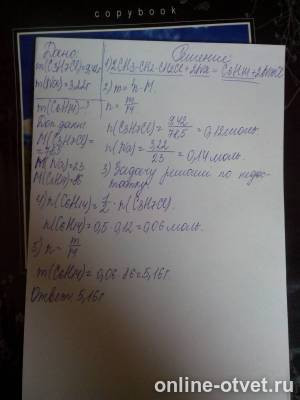 copybook
Дано:
m(C3H7Cl)=9,42г
m(Na)=3,22г
m(C6H14)-?
Доп. данн:
M(C3H7Cl)=
=78,5
M(Na)=23
M(C6H14)=86
Решение
1) 2CH3-CH2-CH2Cl+2Na → C6H14+2NaCl
2) m=n·M.
n=m/M
n(C3H7Cl)=9,42/78,5=0,12моль
n(Na)=3,22/23=0,14 моль.
3) Задачу решаем по недос-
татку.
4) n(C6H14)=1/2·n(C3H7Cl).
n(C6H14)=0,5·0,12=0,06 моль.
5) n=m/M
m(C6H14)=0,06·86=5,16г
Ответ: 5,16г
online-otvet.ru